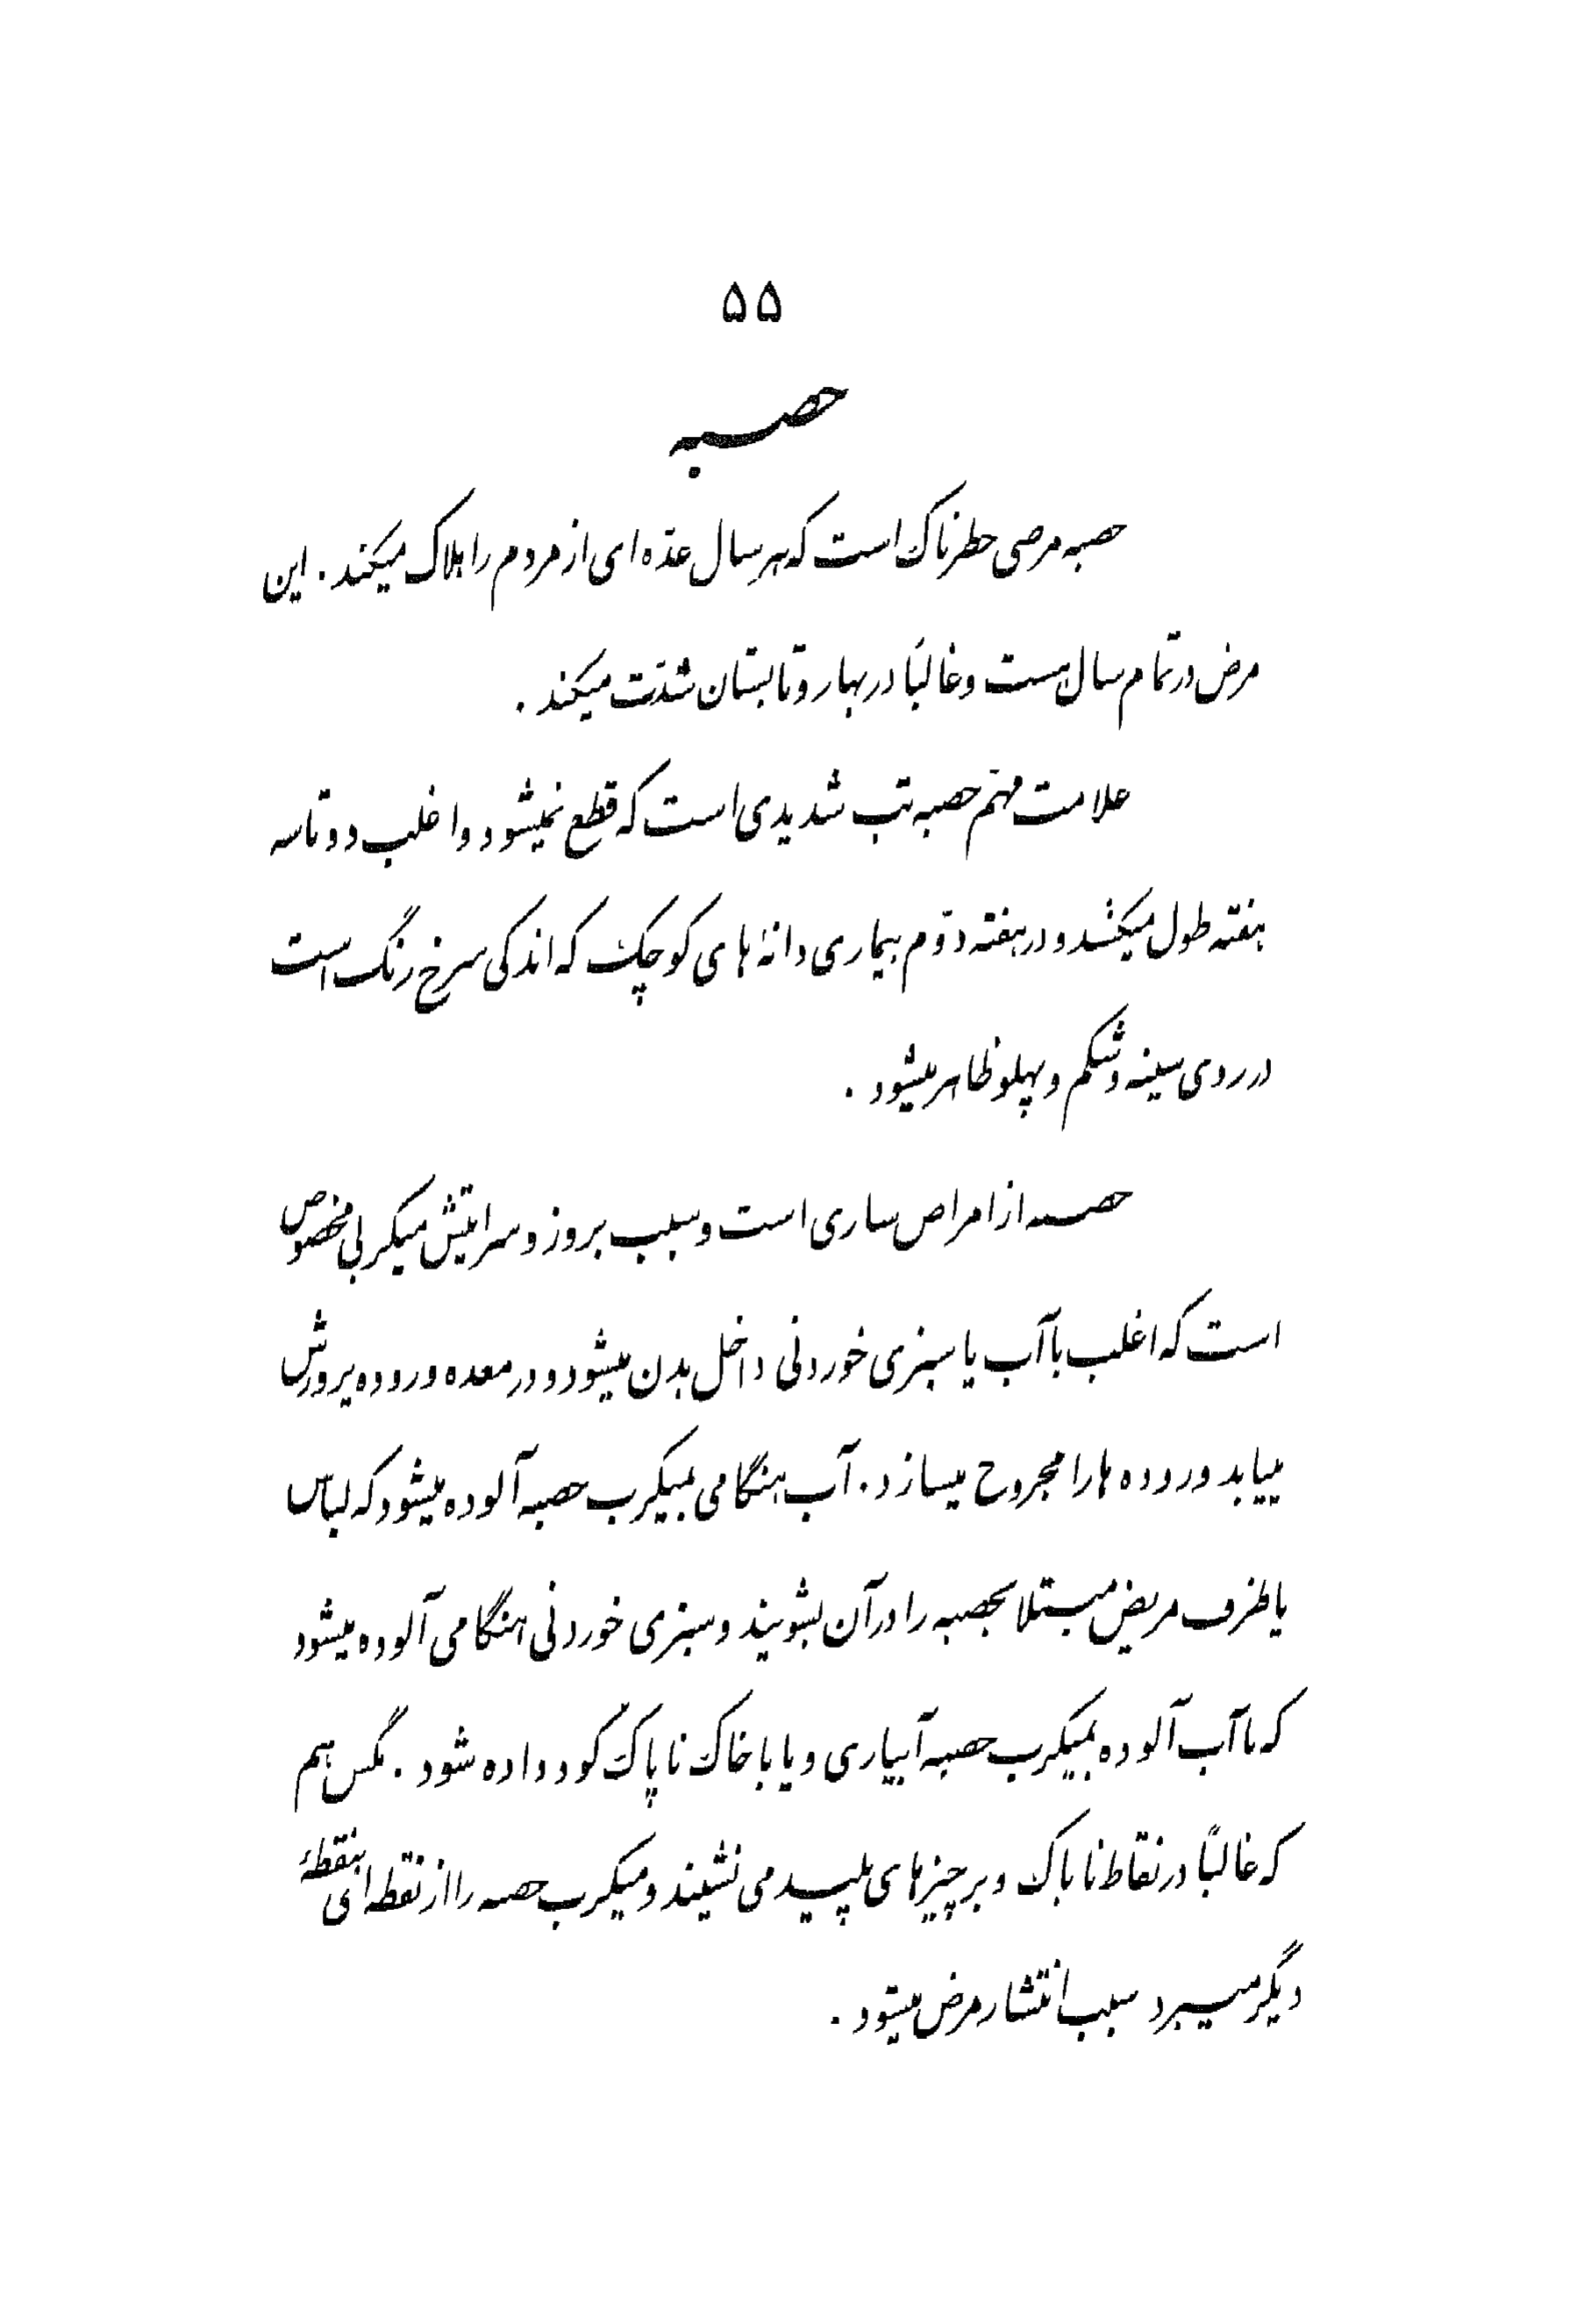 ۵۵
حصبه
حصبه مرضی خطرناک است که هر سال عدّه ای از مردم را هلاک میکند. این
مرض در تمام سال هست و غالباً در بهار و تابستان شدّت میکند.
علامت مهمّ حصبه تب شدیدی است که قطع نمیشود و اغلب دو تا سه
هفته طول میکشد و در هفته دوّم بیماری دانهٔ های کوچک که اندکی سرخ رنگ است
در روی سینه و شکم و پهلو ظاهر میشود.
حصبه از امراض ساری است و سبب بروز و سرایتش میکربی مخصوص
است که اغلب با آب یا سبزی خوردنی داخل بدن میشود و در معده و روده پرورش
مییابد و روده ها را مجروح میسازد. آب هنگامی بمیکرب حصبه آلوده میشود که لباس
یا ظرف مریض مبتلا بحصبه را در آن بشویند و سبزی خوردنی هنگامی آلوده میشود
که با آب آلوده بمیکرب حصبه آبیاری و یا با خاک ناپاک کود داده شود. مگس هم
که غالباً در نقاط ناپاک و بر چیزهای پلید می نشیند و میکرب حصبه را از نقطه ای بنقطهٔ
دیگر میبرد سبب انتشار مرض میشود.